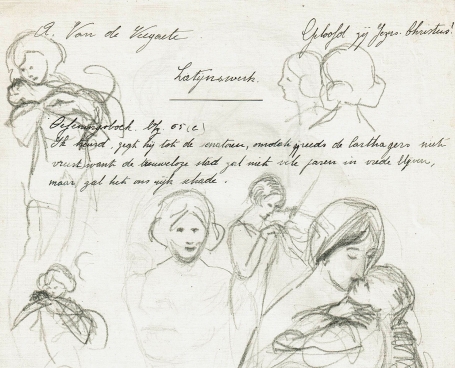 A. Van de Veegaete
Geloofd zij Jezus Christus!
Latijnswerk.
Oefeningsboek. blz 05 (c)
Ik houd, zegt hij tot de senatoren, omdat de Carthagers niet
want de trouweloze stad zal niet vele jaren in vrede blijven,
maar zal het ons rijk schade.